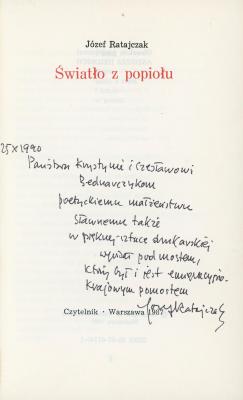 Józef Ratajczak
Światło z popiołu
25 X 1990
Państwu Krystynie i Czesławowi
Bednarczykom
poetyckiemu małżeństwu
sławnemu także
w pięknej sztuce drukarskiej
pod mostem,
który był i jest emigracyjno-
krajowym pomostem
Józef Ratajczak
Czytelnik · Warszawa 1987